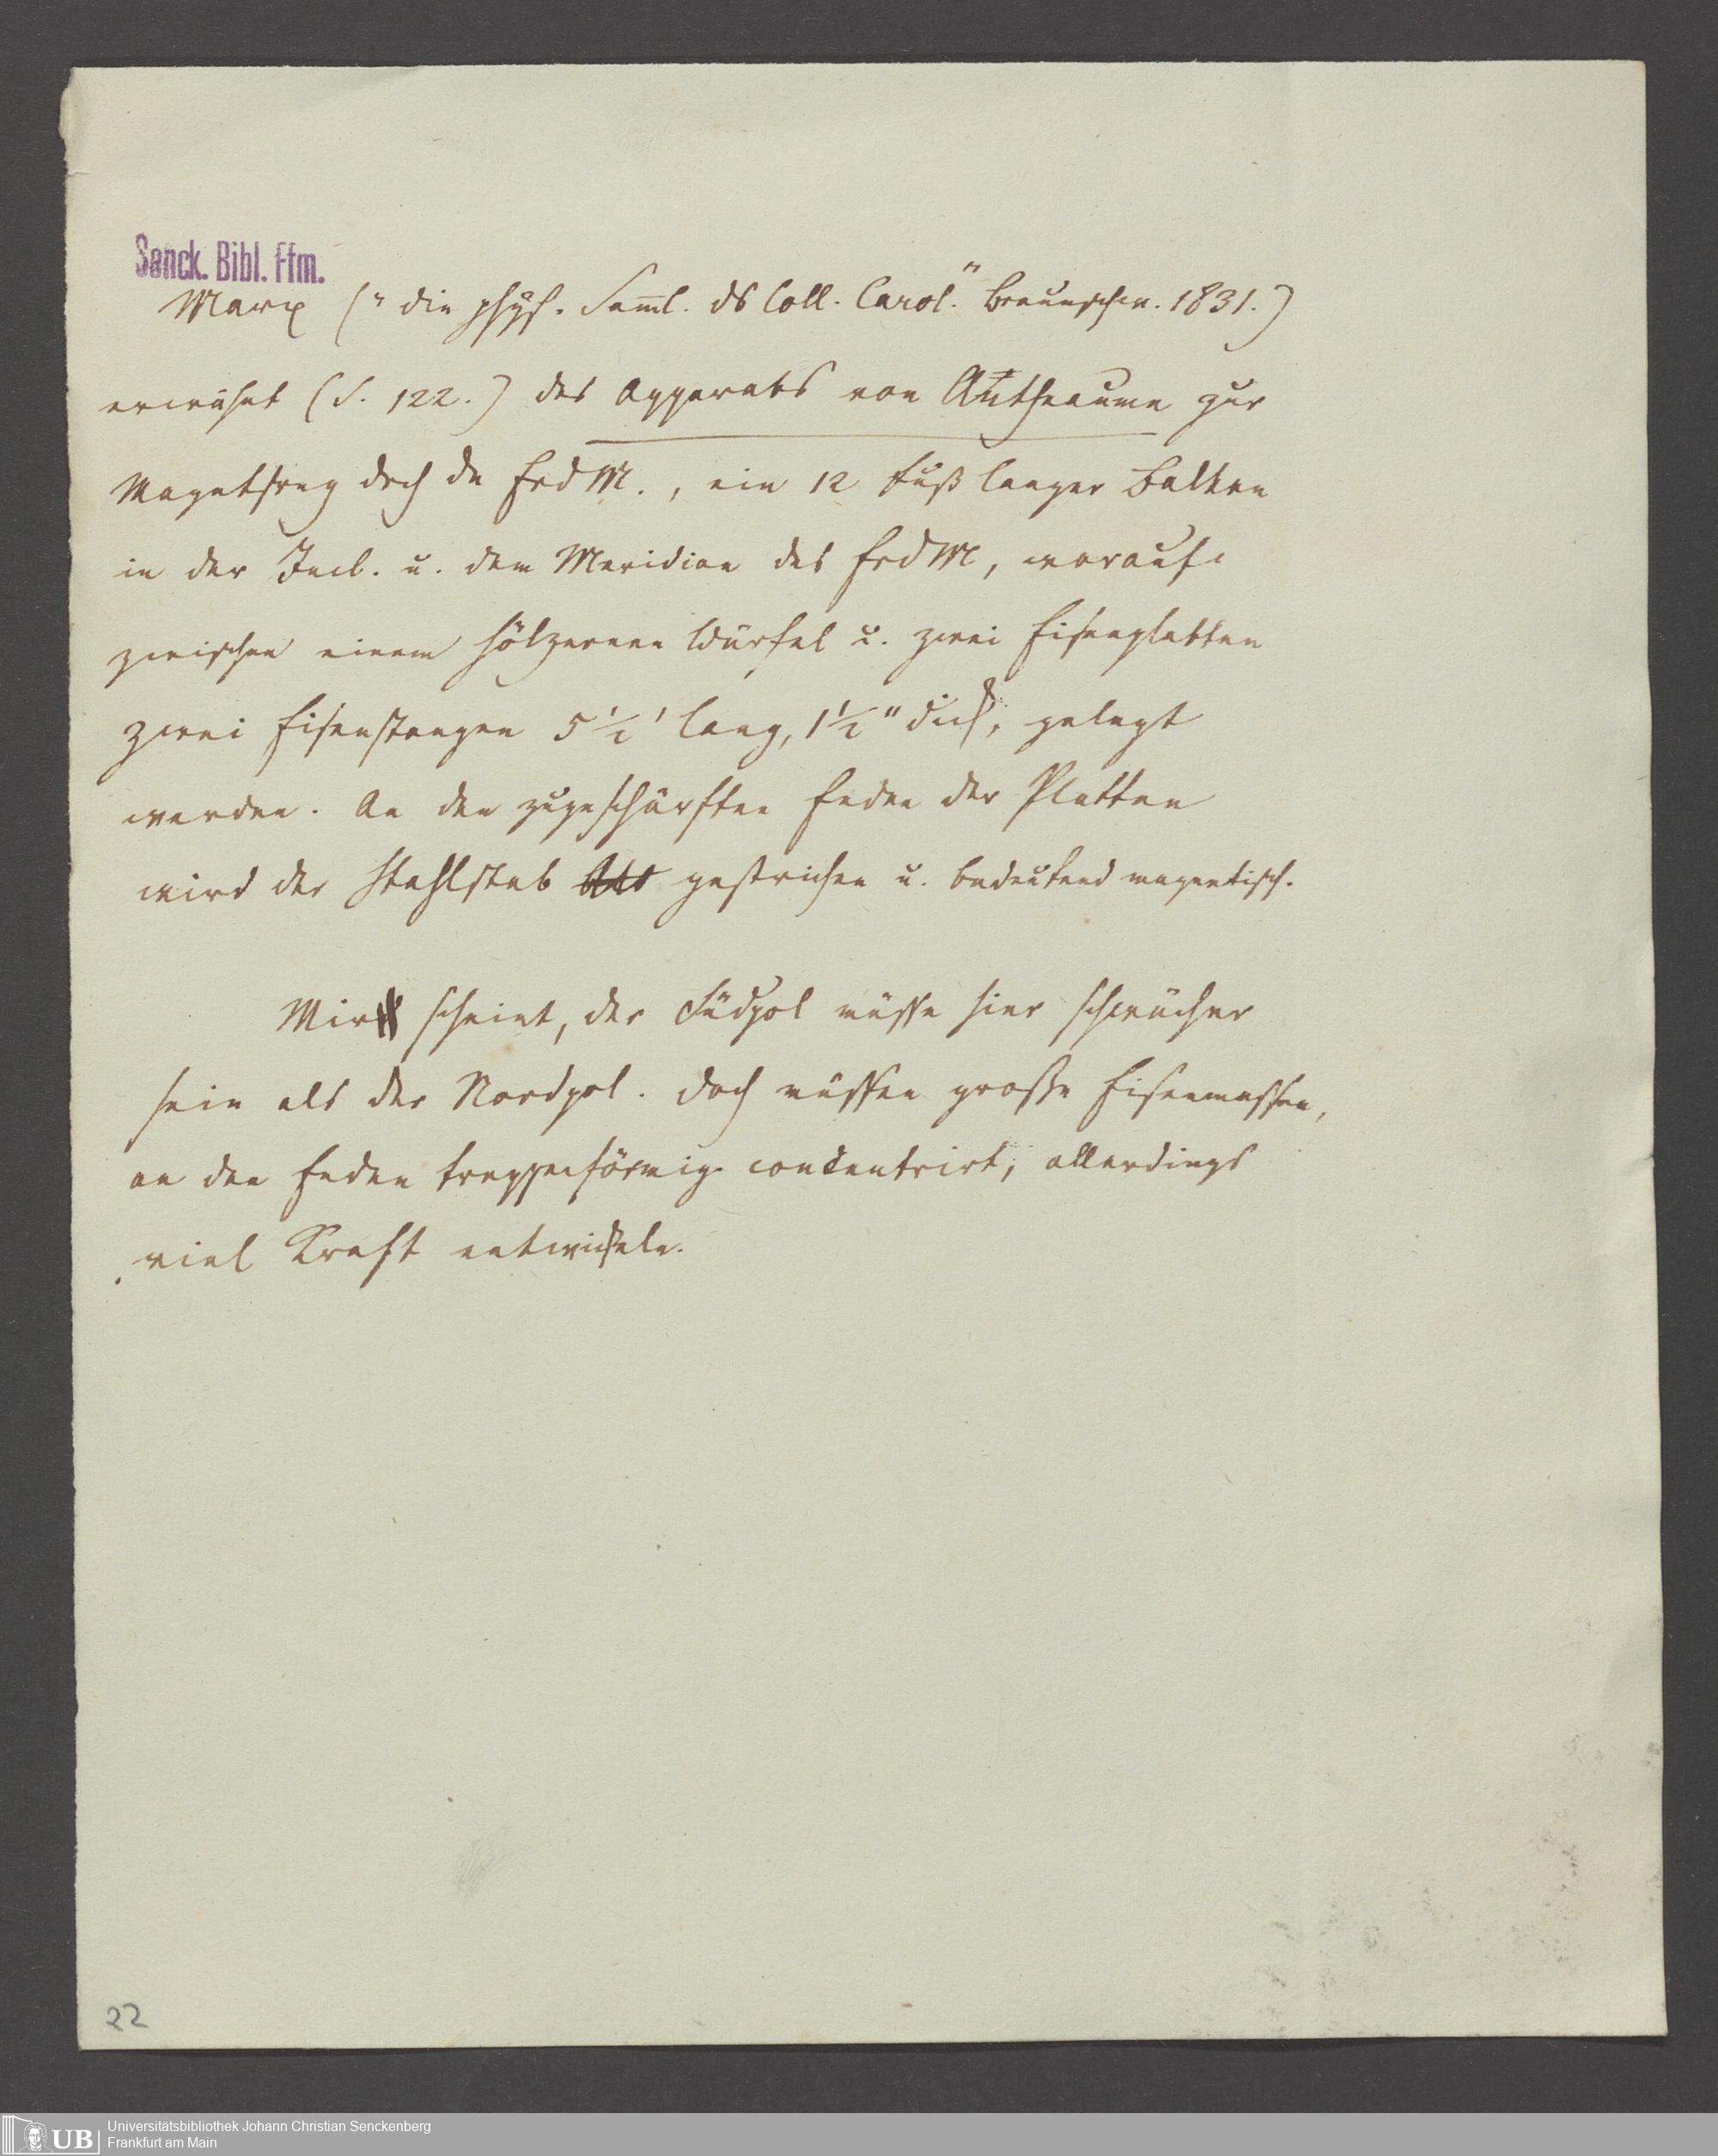 Senck. Bibl. Ffm.
Marx („die phys. Saml. ds Coll. Carol." Braunschw. 1831.)
erwähnt (S. 122.) des Apparats von Antheaume zur
Magnetsrng dch dn ErdM., ein 12 Fuß langer Balken
in der Incl. u. dem Meridian des ErdM, worauf
zwischen einem hölzernen Würfel u. zwei Eisenplatten
zwei Eisenstangen 5½' lang, 1½" dick, gelegt
werden. An den zugeschärften Enden der Platten
wird der Stahlstab gestrichen u. bedeutend magnetisch.
Mir scheint, der Südpol müsse hier schwächer
sein als der Nordpol. Doch müssen große Eisenmassen,
an den Enden treppenförmig concentrirt, allerdings
viel Kraft entwickeln.
22
UB
Universitätsbibliothek Johann Christian Senckenberg
Frankfurt am Main